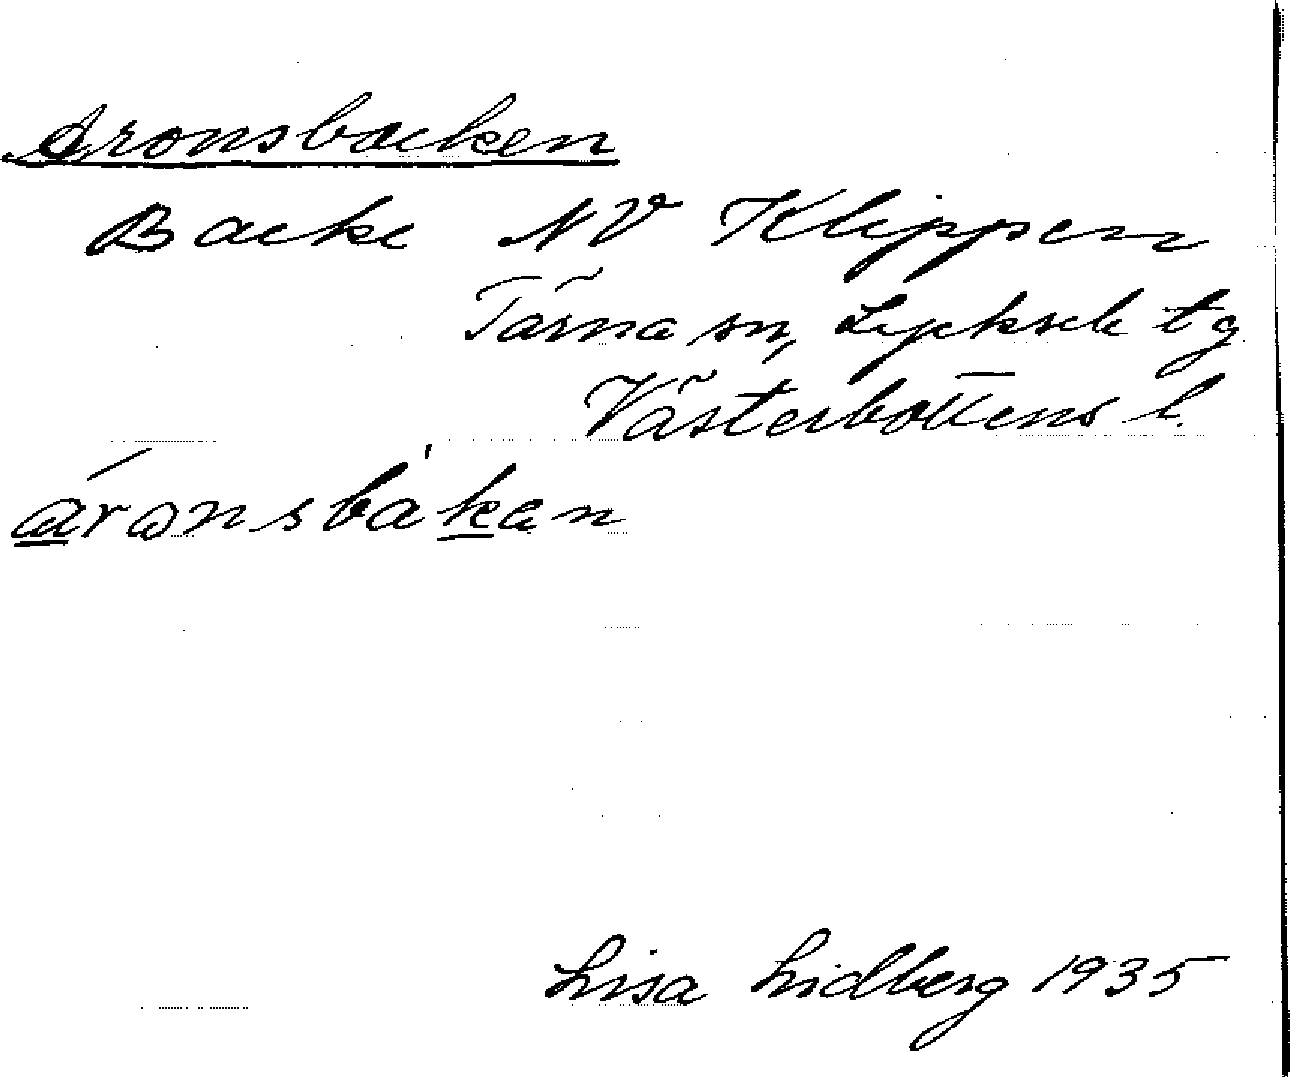 Aronsbacken
Backe NV Klippen
Tärna sn, Lycksele tg
Västerbottens l.
áronsbakan
Lisa Lidberg 1935